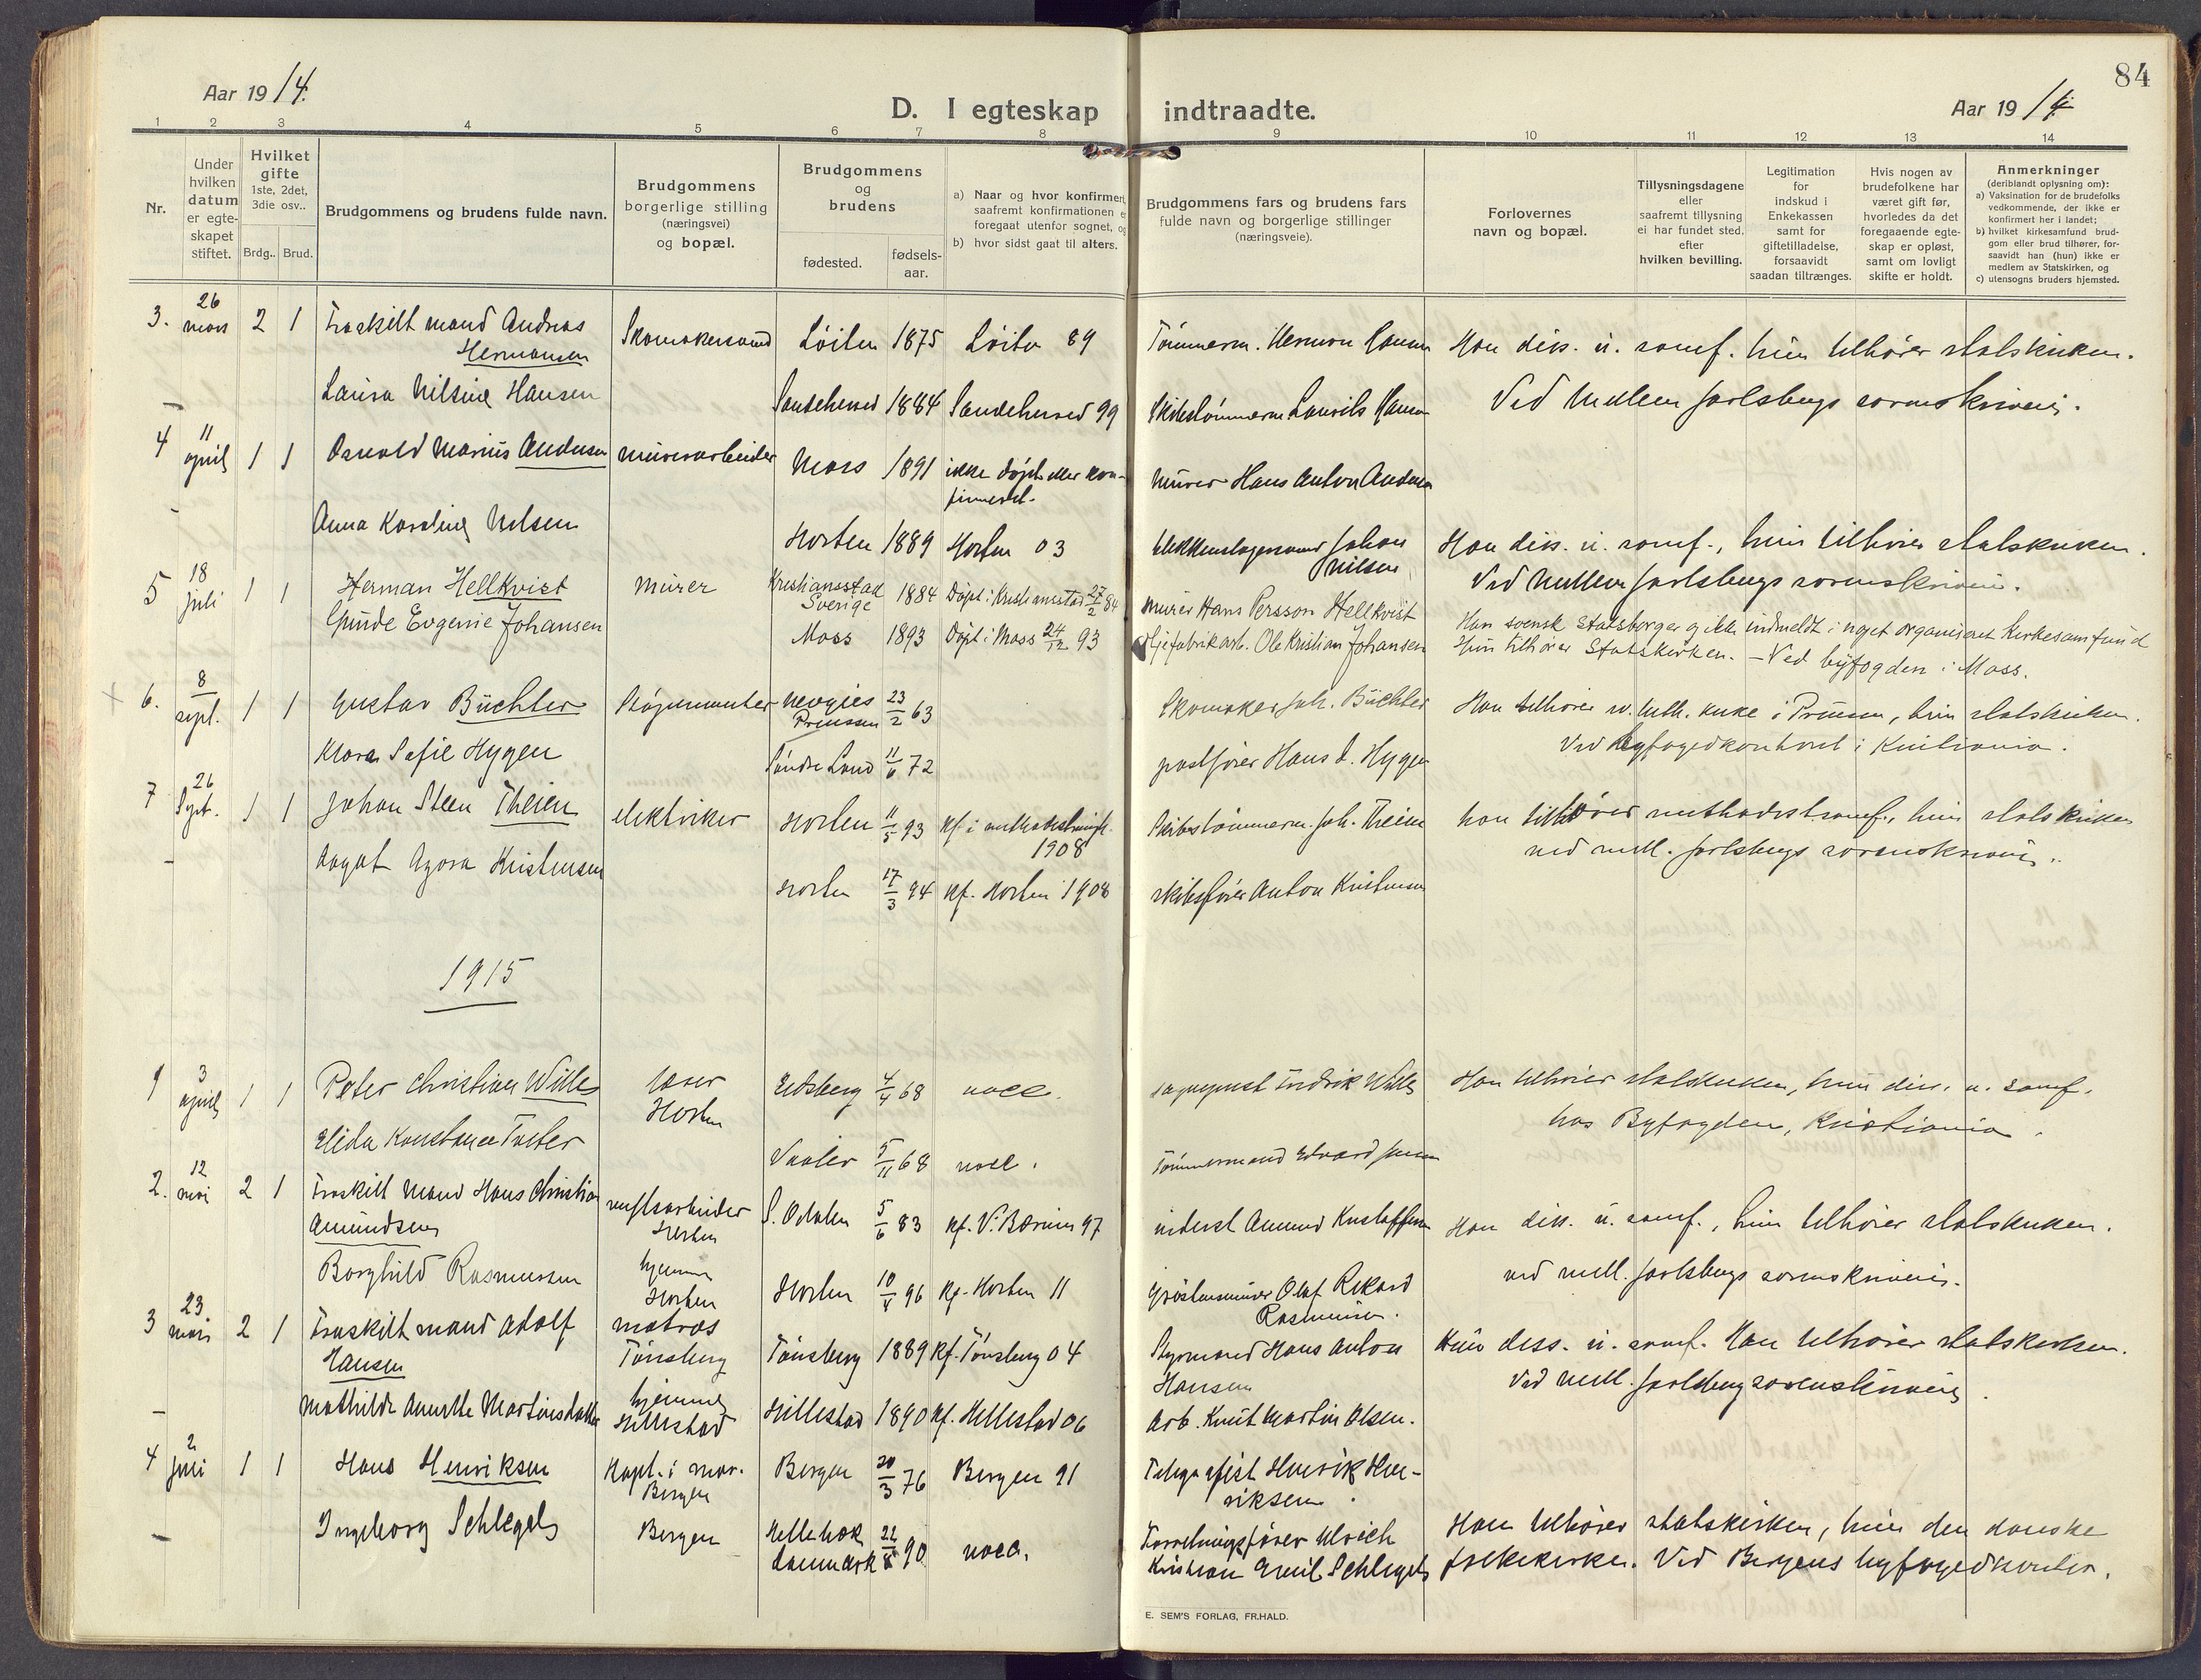 84
Aar 1914.
D. I egteskap indtraadte.
Aar 1914.
1 2 3 4 5 6 7 8 9 10 11 12 13 14
Nr.
Under
hvilken
datum
er egte-
skapet
stiftet.
Hvilket
gifte
1ste, 2det,
3die osv..
Brdg.. Brud.
Brudgommens og brudens fulde navn.
Brudgommens
borgerlige stilling
(næringsvei)
og bopæl.
Brudgommens
og
brudens
fødested.
fødsels-
aar.
a) Naar og hvor konfirmert,
saafremt konfirmationen er
foregaat utenfor sognet, og
b) hvor sidst gaat til alters.
Brudgommens fars og brudens fars
fulde navn og borgerlige stillinger
(næringsveie).
Forlovernes
navn og bopæl.
Tillysningsdagene
eller
saafremt tillysning
ei har fundet sted,
efter
hvilken bevilling.
Legitimation
for
indskud i
Enkekassen
samt for
giftetilladelse,
forsaavidt
saadan tiltrænges.
Hvis nogen av
brudefolkene har
været gift før,
hvorledes da det
foregaaende egte-
skap er opløst,
samt om lovligt
skifte er holdt.
Anmerkninger
(deriblandt oplysning om):
a) Vaksination for de brudefolks
vedkommende, der ikke er
konfirmert her i landet;
b) hvilket kirkesamfund brud-
gom eller brud tilhører, for-
saavidt han (hun) ikke er
medlem av Statskirken, og
c) utensogns bruders hjemsted.
3. 26 mars 2 1 Fraskilt mand Andreas Hermansen Skomakersvend Løiten 1875 Løiten 89 Tømmerm. Herman Hansen Han diss. u. samf. hun tilhører statskirken.
Laura Nilsine Hansen Sandeherred 1884 Sandeherred 99 Skibstømmerm Laurits Hansen Ved Mellem Jarlsbergs sorenskriveri.
4 11 april 1 1 Osvald Marius Andersen murerarbeider Moss 1891 ikke døpt eller kon-
firmeret. Murer Hans Anton Andersen
Anna Karoline Nilsen Horten 1889 Horten 03 blikkenslagersvend Johan Nilsen Han diss. u. samf., hun tilhører statskirken.
Ved Mellem Jarlsbergs sorenskriveri.
5 18 juli 1 1 Herman Hellkvist Murer Kristiansstad Sverige 1884 Døpt i Kristiansstad 27/2 84 Murer Hans Persson Hellkvist Han svensk Statsborger og ikke indmeldt i noget organiseret kirkesamfund
Gunde Evgenie Johansen Moss 1893 Døpt i Moss 24/12 93 Ole Kristian Johansen Hun tilhører Statskirken. - Ved byfogden i Moss.
6. 8 sept. 1 1 Gustav Büchler Preussen 23/2 63 Skomaker Joh. Büchler Han tilhører ev. luth. kirke i Preusen, hun statskirken.
Klara Sofie Hygen Søndre Land 11/6 72 postfører Hans L. Hygen Ved byfogedkontoret i Kristiania.
7 26 Sept. 1 1 Johan Steen Theien elektriker Horten 11/5 93 Kf. i methodistmenigh. 1908 Skibstømmerm. Joh. Theien han tilhører methodistsamf., hun statskirken
Aagot Agora Kristensen Horten 17/3 94 Kf. Horten 1908 skibsfører Anton Kristensen ved mell. Jarlsbergs sorenskriveri.
1915
1 3 april 1 1 Peter Christian Wille Horten Eidsberg 4/4 68 vacc. Fredrik Wille Han tilhører statskirken, hun diss. u. samf.
Elida Konstance Tveter Vaaler 5/11 68 vacc. Tømmermand Edvard Jensen hos Byfogden, Kristiania.
2. 12 mai 2 1 Fraskilt Mand Hans Christian Amundsen verftsarbeider Horten S. Odalen 5/6 83 Kf. V. Bærum 97 inderst Amund Kristoffersen Han diss. u. samf., hun tilhører statskirken.
Borghild Rasmussen hjemme Horten Horten 10/8 96 Kf. Horten 11 Olaf Rikard Rasmussen. ved mell. Jarlsbergs sorenskriveri.
3 23 mars 2 1 Fraskilt mand Adolf Hansen matros Tønsberg Tønsberg 1889 Kf. Tønsberg 04 Styrmand Hans Anton Hansen Hun diss. u. samf. Han tilhører statskirken.
Mathilde Annette Martinsdatter hjemme Hillestad Hillestad 1890 Kf. Hillestad 06 Arb. Knut Martin Olsen. Ved mell. Jarlsberg sorenskriveri.
4 2 juli 1 1 Hans Henriksen Kapt. i mar. Bergen Bergen 20/3 76 Bergen 91 Telegrafist Henrik Hen-
riksen.
Ingeborg Schlegel Bergen Hellebæk Danmark 22/8 90 vacc. Forretningsfører Ulrich Kristian Emil Schlegel Han tilhører statskirken, hun den danske
folkekirke. Ved Bergens byfogedkontor.
E. SEM'S FORLAG, FR.HALD.